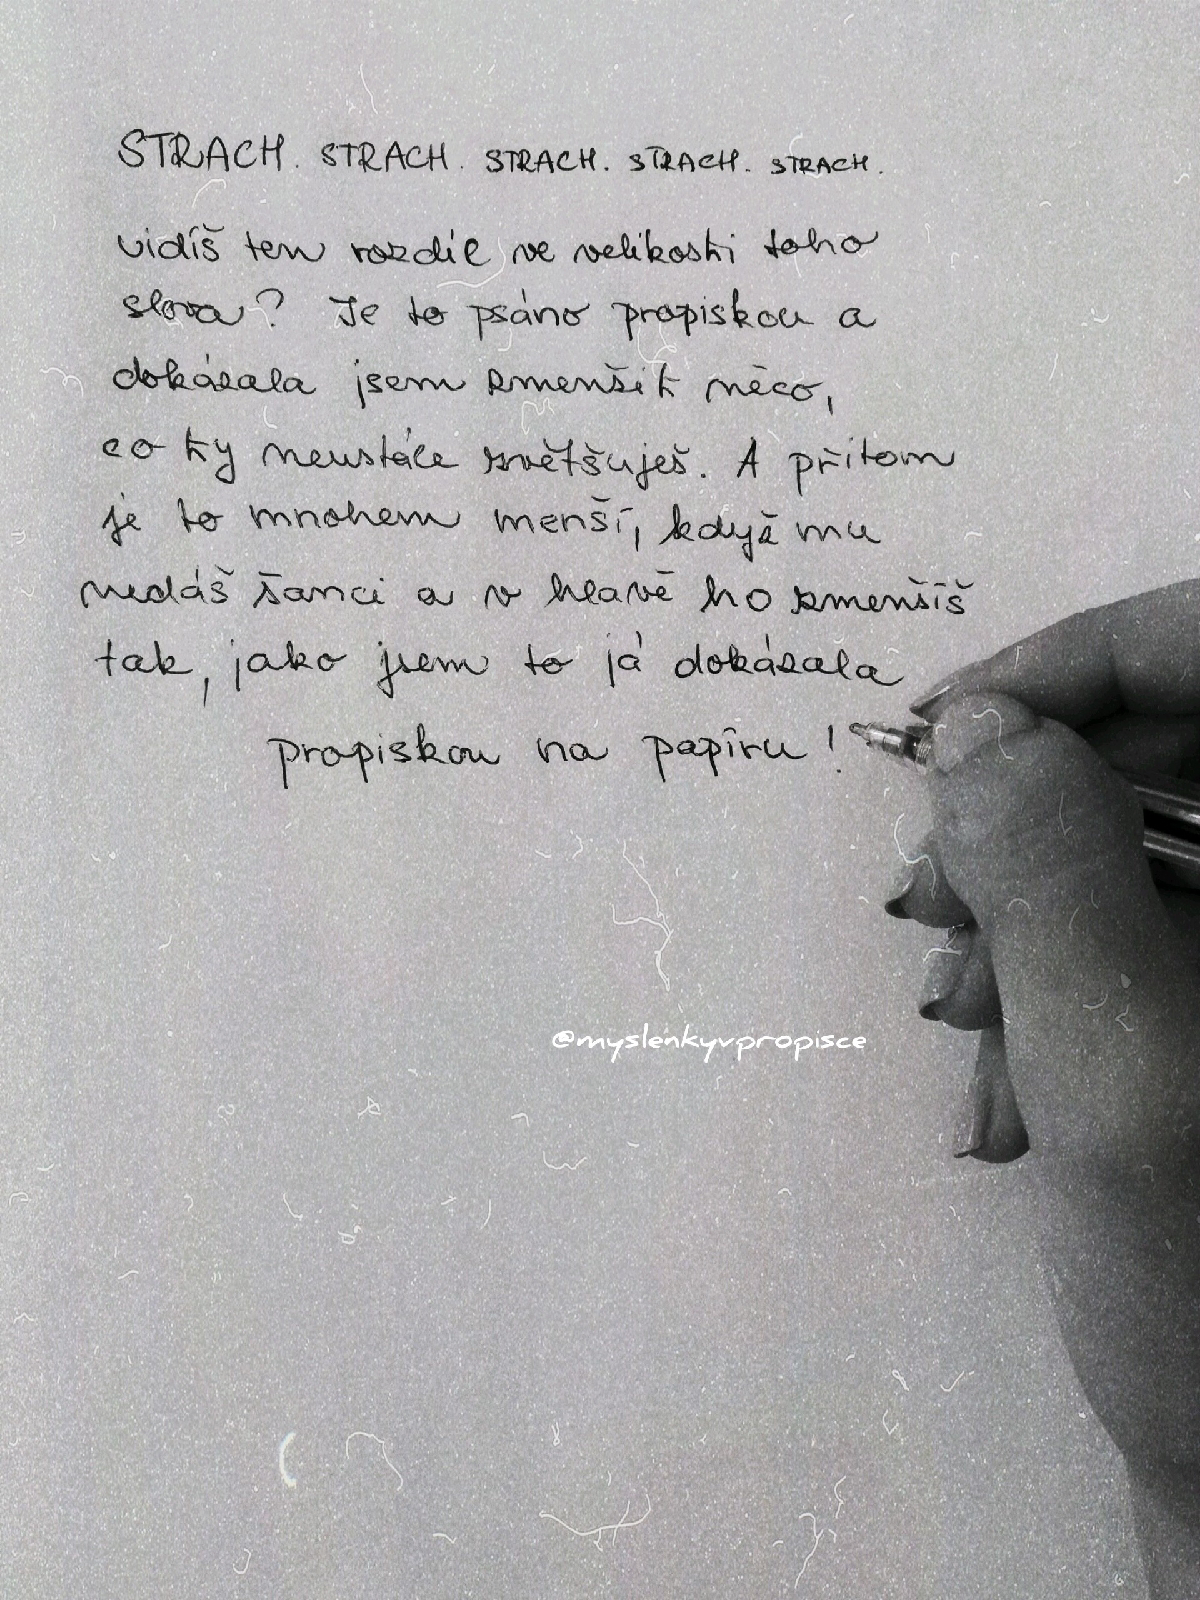 STRACH. STRACH. STRACH. STRACH. STRACH.
vidíš ten rozdíl ve velikosti toho
slova? Je to psáno propiskou a
dokázala jsem zmenšit něco,
co ty neustále zvětšuješ. A přitom
je to mnohem menší, když mu
nedáš šanci a v hlavě ho zmenšíš
tak, jako jsem to já dokázala
propiskou na papíru!
@myslenkyvpropisce